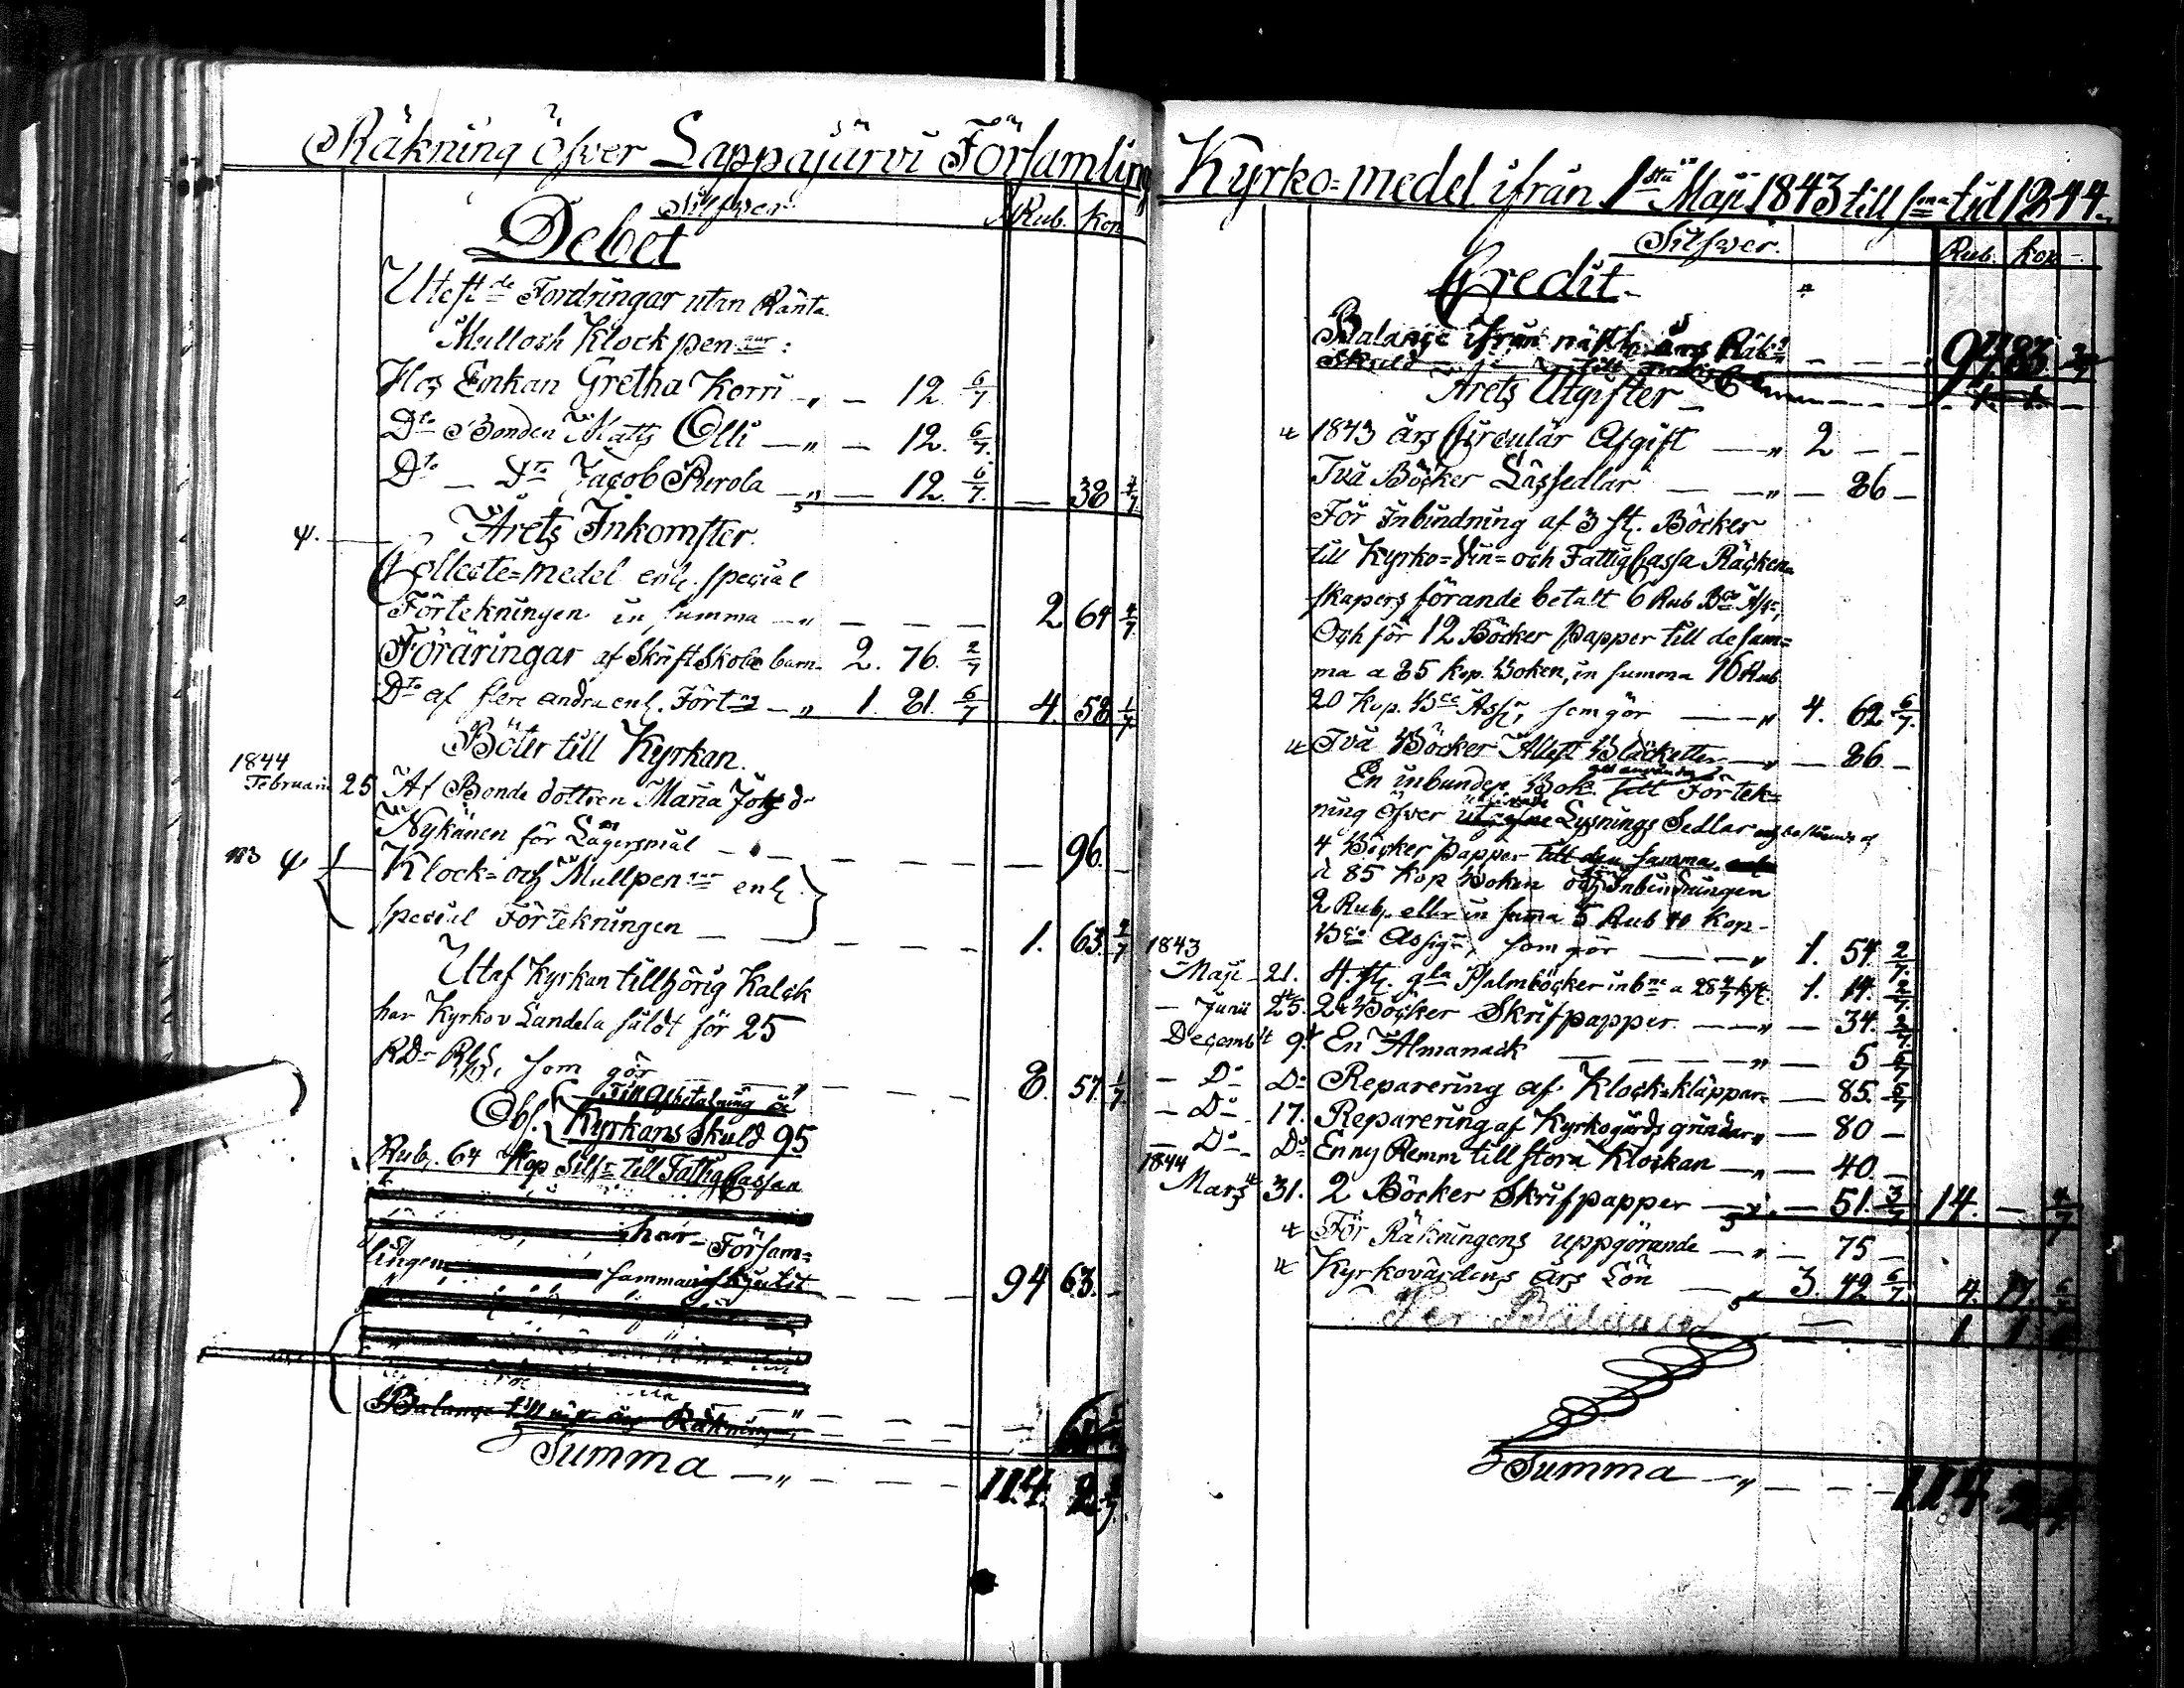 Räkning öfver Lappajärvi Församling
Silfver. Rub. Kop
Debet
Utest:de Fordringar utan Ränta
Mull och Klock pen:ar:
Hos Enkan Gretha Korri — 12 6/7
D:to Bonden Matts Olli — 12. 6/7.
D:to — D:to Jacob Rurola — 12. 6/7. — 38 4/7
Årets Inkomster.
Collecte=medel enl. special
Förtekningen in summa — 2 64 4/7
Föräringar af Skrift Skole barn 2. 76. 2/7
D:to af flere andra enl. Fört:ng — 1. 81. 6/7 4. 58 1/7
Böter till Kyrkan.
1844
Februari 25 Af Bonde dottren Maria Johs d:r
Nykänen för Lägersmål — 96. —
Klock= och Mullpen:ar enl
special Förtekningen — 1. 63. 2/7
Utaf Kyrkan tillhörig Kalck
har Kyrkov Landela såldt för 25
RD:r Rgs, som gör — 8. 57. 1/7
Till Afbetalning å
Obs. Kyrkans Skuld 95
Rub. 64 Kop Silf:r till Fattig Cassan
har Försam=
lingen sammanskjutit — 94 63. —
Balance till Räkning
Summa — 114. 2
Kyrko=medel ifrån 1:sta Maji 1843 till s:ma tid 1844.
Silfver. Rub. Kop
Credit
Balance ifrån näst Räk:g
Skuld
Årets Utgifter
1843 års Circulär Afgift — 2 — —
Två Böcker Låssedlar — — 86 —
För Inbindning af 3 st. Böcker
till Kyrko= Vin= och Fattig Cassa Räcken=
skapers förande betalt 6 Rub B:co Ass:
Och för 12 Böcker Papper till de sam=
ma a 85 Kop. Boken, in summa 16 Rub
20 Kop. B:co Ass, som gör — 4. 62 6/7.
Två Böcker Attest Blancketter — — 86 —
En inbunden Bok till Förtek=
ning öfver Lysnings Sedlar
4 Böcker Papper till den samma
a 85 Kop Boken och Inbindningen
2 Rub, eller in summa 5 Rub 40 Kop
B:co Assig, som gör — 1. 54. 2/7.
1843
Maji 21. 4 st. g:la Psalmböcker inb:ne a 28 4/7 — 1. 14. 2/7.
— Junii 25. 2 Böcker Skrifpapper — — 34. 2/7.
Decemb 9. En Almanack — 5 5/7
— D:o D:o Reparering af Klock=kläppar — 85. 5/7
— D:o 17. Reparering af Kyrkogårds grindar — 80 —
— D:o D:o En ny Remm till stora Klockan — 40. —
1844
Mars 31. 2 Böcker Skrifpapper — 51. 3/7 14. — 4/7
För Räkningens uppgörande — 75 —
Kyrkovärdens års Lön 3. 42 6/7 4. 17. 6/7
Per Balance
Summa — 114 2